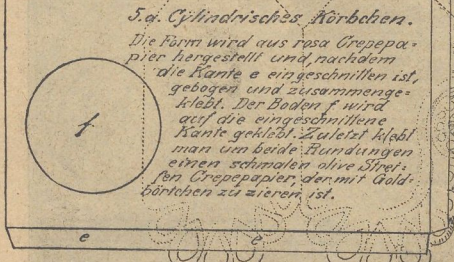 5.a. Cylindrisches Körbchen.
Die Form wird aus rosa Crepepa=
pier hergestellt und, nachdem
die Kante e eingeschnitten ist,
gebogen und zusammenge=
klebt. Der Boden f wird
auf die eingeschnittene
Kante geklebt. Zuletzt klebt
man um beide Rundungen
einen schmalen olive Strei=
fen Crepepapier, der mit Gold=
börtchen zu zieren ist.
f
e e